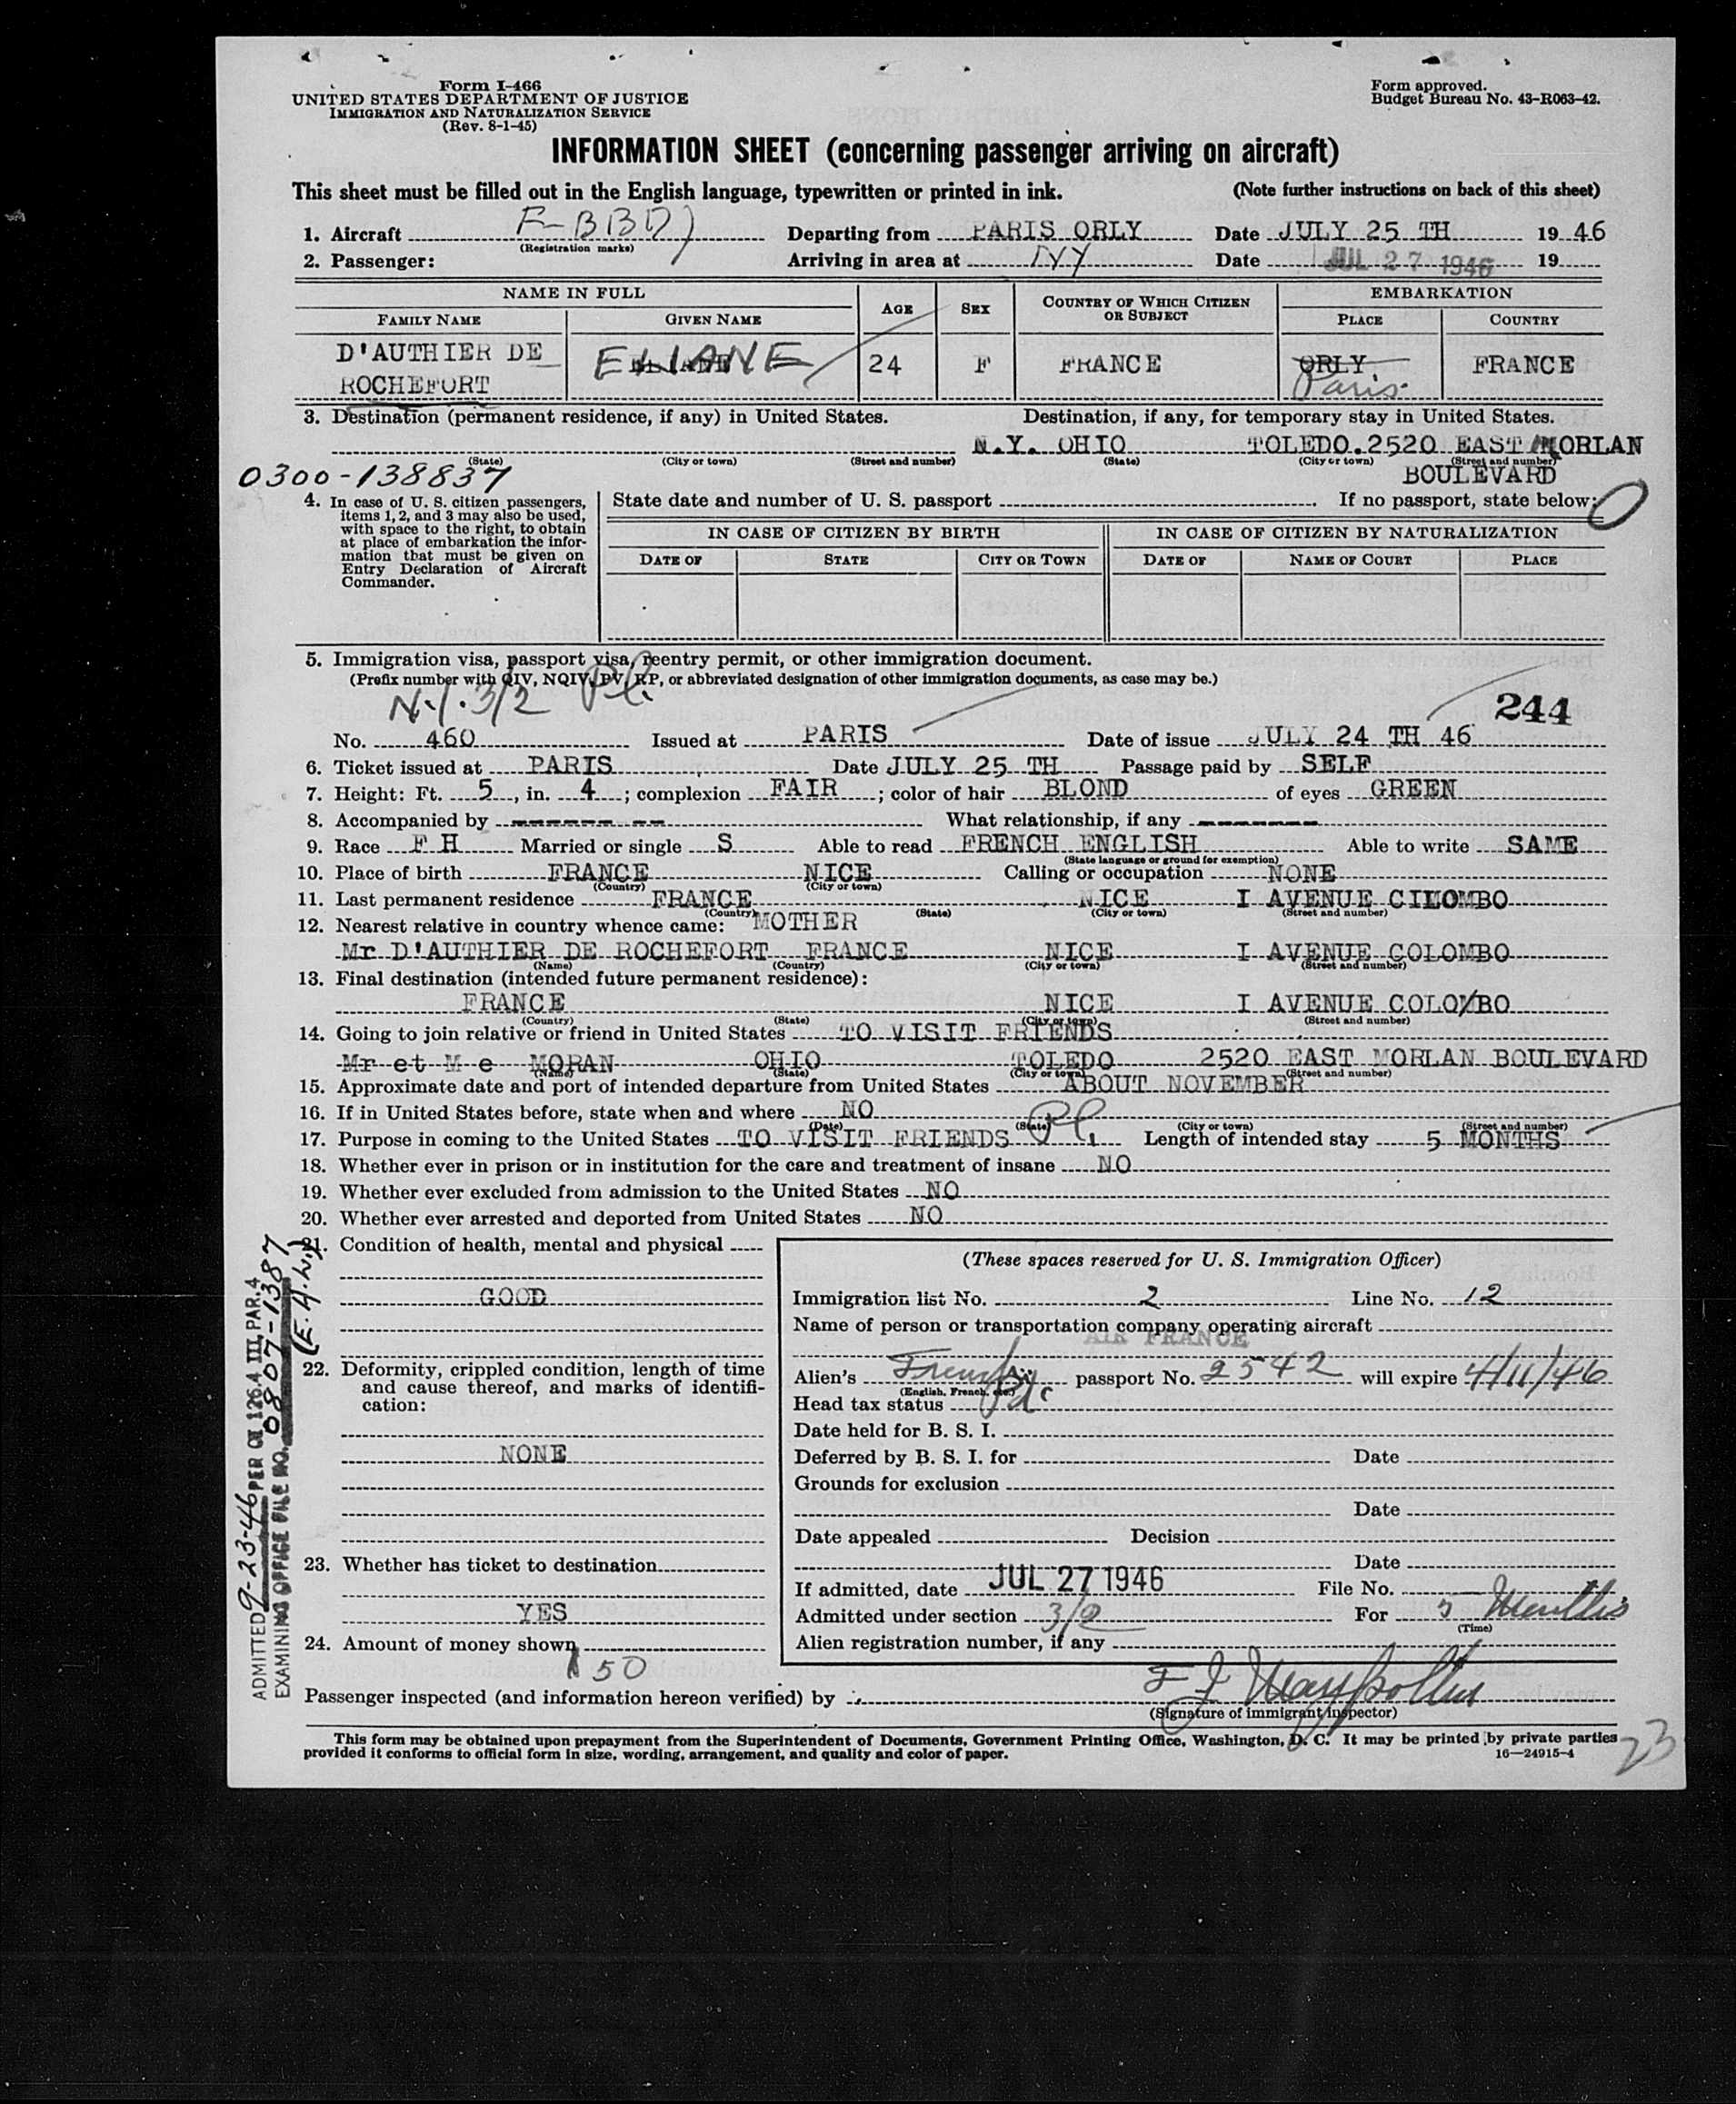 Form I-466
UNITED STATES DEPARTMENT OF JUSTICE
IMMIGRATION AND NATURALIZATION SERVICE
(Rev. 8-1-45)
Form approved.
Budget Bureau No. 43-R063-42.
INFORMATION SHEET (concerning passenger arriving on aircraft)
This sheet must be filled out in the English language, typewritten or printed in ink. (Note further instructions on back of this sheet)
1. Aircraft F-BBD Departing from PARIS ORLY Date JULY 25 TH 1946
(Registration marks)
2. Passenger: Arriving in area at NY Date JUL 27 1946 19
NAME IN FULL AGE SEX COUNTRY OF WHICH CITIZEN OR SUBJECT EMBARKATION
FAMILY NAME GIVEN NAME PLACE COUNTRY
D'AUTHIER DE ELIANE 24 F FRANCE ORLY FRANCE
ROCHEFORT Paris
3. Destination (permanent residence, if any) in United States. Destination, if any, for temporary stay in United States.
N.Y. OHIO TOLEDO.2520 EAST MORLAN
(State) (City or town) (Street and number) (State) (City or town) (Street and number)
0300-138837 BOULEVARD
4. In case of U. S. citizen passengers, items 1, 2, and 3 may also be used, with space to the right, to obtain at place of embarkation the information that must be given on Entry Declaration of Aircraft Commander.
State date and number of U. S. passport If no passport, state below:
IN CASE OF CITIZEN BY BIRTH IN CASE OF CITIZEN BY NATURALIZATION
DATE OF STATE CITY OR TOWN DATE OF NAME OF COURT PLACE
5. Immigration visa, passport visa, reentry permit, or other immigration document.
(Prefix number with QIV, NQIV, PV, RP, or abbreviated designation of other immigration documents, as case may be.)
N.I. 3/2 244
No. 460 Issued at PARIS Date of issue JULY 24 TH 46
6. Ticket issued at PARIS Date JULY 25 TH Passage paid by SELF
7. Height: Ft. 5, in. 4; complexion FAIR; color of hair BLOND of eyes GREEN
8. Accompanied by ------- -- What relationship, if any -------
9. Race F H Married or single S Able to read FRENCH ENGLISH Able to write SAME
(State language or ground for exemption)
10. Place of birth FRANCE NICE Calling or occupation NONE
(Country) (City or town)
11. Last permanent residence FRANCE NICE I AVENUE CILOMBO
(Country) (State) (City or town) (Street and number)
12. Nearest relative in country whence came: MOTHER
Mr D'AUTHIER DE ROCHEFORT FRANCE NICE I AVENUE COLOMBO
(Name) (Country) (City or town) (Street and number)
13. Final destination (intended future permanent residence):
FRANCE NICE I AVENUE COLO/BO
(Country) (State) (City or town) (Street and number)
14. Going to join relative or friend in United States TO VISIT FRIENDS
Mr et M e MORAN OHIO TOLEDO 2520 EAST MORLAN BOULEVARD
(Name) (State) (City or town) (Street and number)
15. Approximate date and port of intended departure from United States ABOUT NOVEMBER
16. If in United States before, state when and where NO
(Date) (State) (City or town) (Street and number)
17. Purpose in coming to the United States TO VISIT FRIENDS Length of intended stay 5 MONTHS
18. Whether ever in prison or in institution for the care and treatment of insane NO
19. Whether ever excluded from admission to the United States NO
20. Whether ever arrested and deported from United States NO
21. Condition of health, mental and physical
GOOD
22. Deformity, crippled condition, length of time and cause thereof, and marks of identification:
NONE
23. Whether has ticket to destination
YES
24. Amount of money shown
50
(These spaces reserved for U. S. Immigration Officer)
Immigration list No. 2 Line No. 12
Name of person or transportation company operating aircraft
AIR FRANCE
Alien's French passport No. 2542 will expire 4/11/46
(English, French, etc.)
Head tax status
Date held for B. S. I.
Deferred by B. S. I. for Date
Grounds for exclusion
Date
Date appealed Decision
Date
If admitted, date JUL 27 1946 File No.
Admitted under section 3/2 For 5 Months
(Time)
Alien registration number, if any
Passenger inspected (and information hereon verified) by
(Signature of immigrant inspector)
This form may be obtained upon prepayment from the Superintendent of Documents, Government Printing Office, Washington, D. C. It may be printed by private parties
provided it conforms to official form in size, wording, arrangement, and quality and color of paper. 16—24915-4
23
ADMITTED 9-23-46 PER OI 126.4 III, PAR. 4
EXAMINING OFFICE FILE NO. 0807-1387